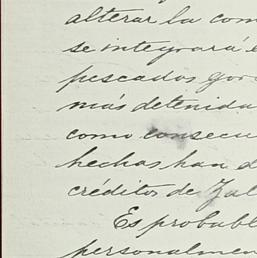 alterar la com
se integrará e
pescados gor
más detenida
como consecu
hechas han d
créditos de Zal
Es probabl
personalmen